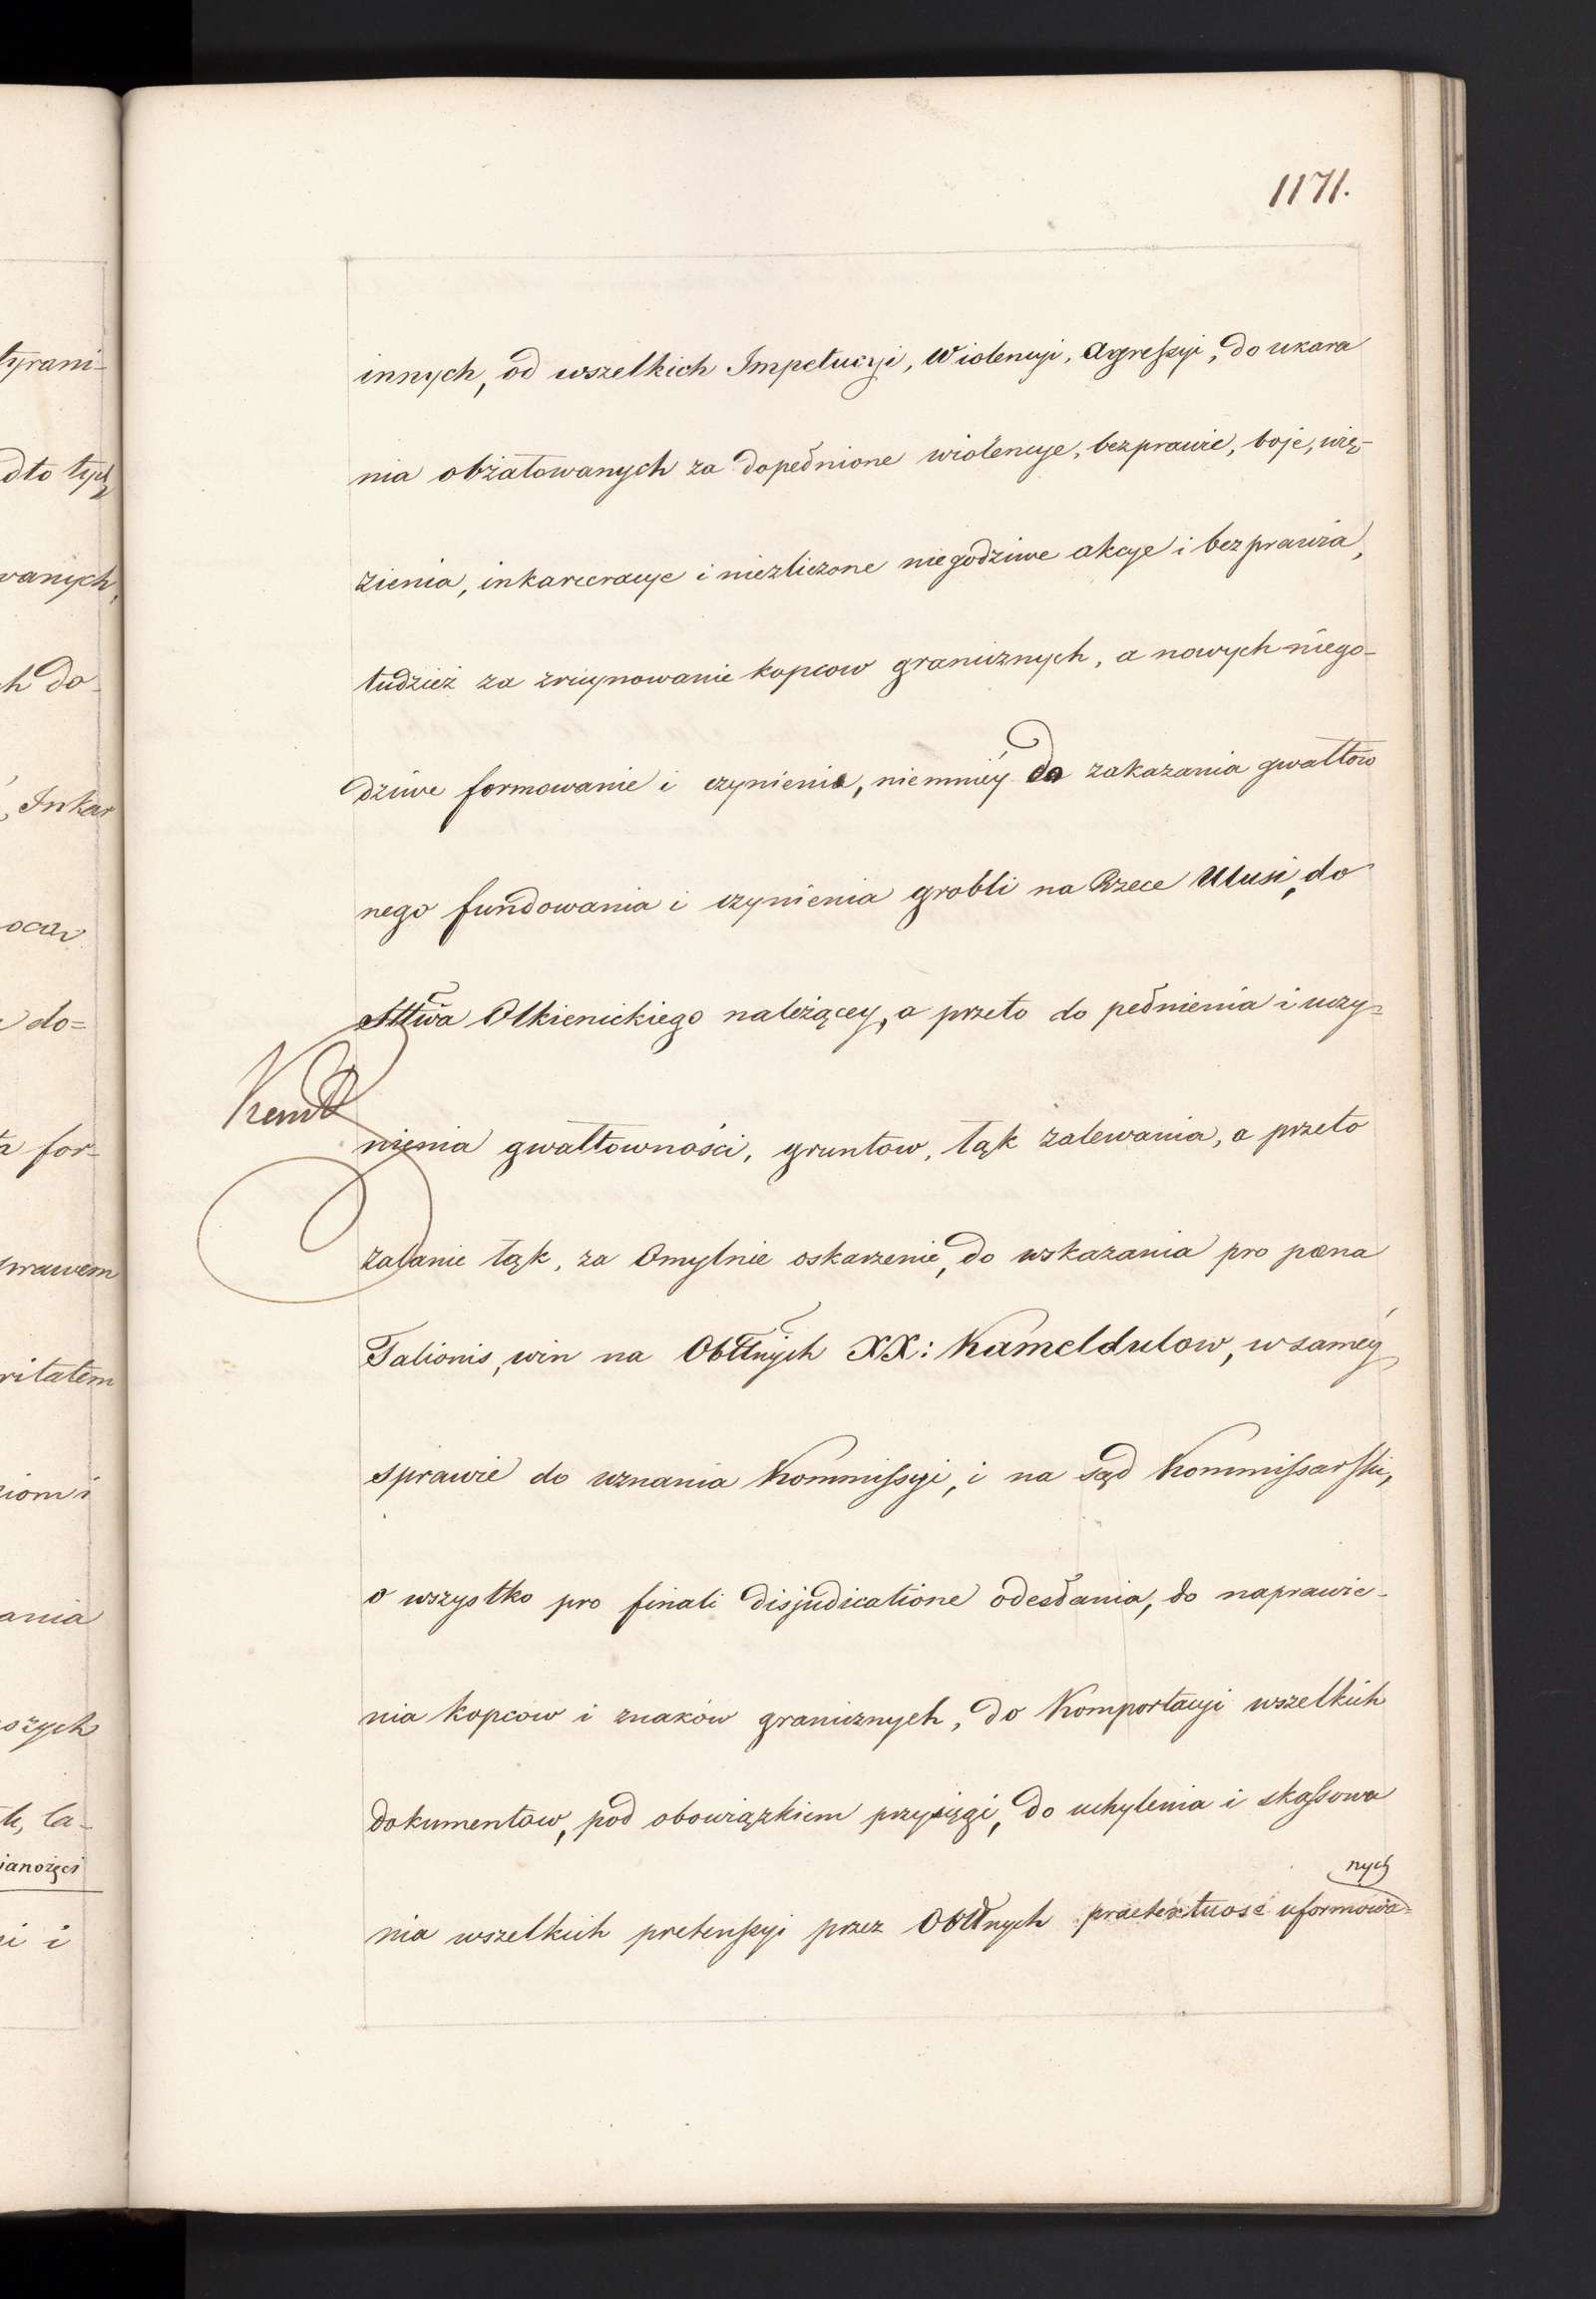 tyrani-
dto tych
wanych,
ch do-
Inkar
do=
for-
prawem
ritatem
ziom i
ania
szych
la-
i i
1171.
innych, od wszelkich Impetucyi, Wiolencyi, Agressyi, do ukara
nia obżałowanych za dopełnione wiolencye, bezprawie, boje, wię-
zienia, inkarceracye i niezliczone niegodziwe akcye i bezprawia,
tudzież za zruynowanie kopcow granicznych, a nowych niego-
dziwe formowanie i czynienie, niemniéy do zakazania gwałtow
nego fundowania i czynienia grobli na Rzece Ulusi, do
Sttwa Olkienickiego należącey, a przeto do pełnienia i uczy=
nienia gwałtowności, gruntow, łąk zalewania, a przeto
zalanie łąk, za Omylnie oskarżenie, do wskazania pro pœna
Talionis, win na Obłłnych XX: Kameldulow, w saméy
sprawie do uznania Kommissyi, i na sąd Kommissarski,
o wszystko pro finali disjudicatione odesłania, do naprawie-
nia kopcow i znaków granicznych, do Komportacyi wszelkich
dokumentow, pod obowiązkiem przysięgi, do uchylenia i skassowa
nia wszelkich pretensyi przez Obłłnych praetextuose uformowa=
nych